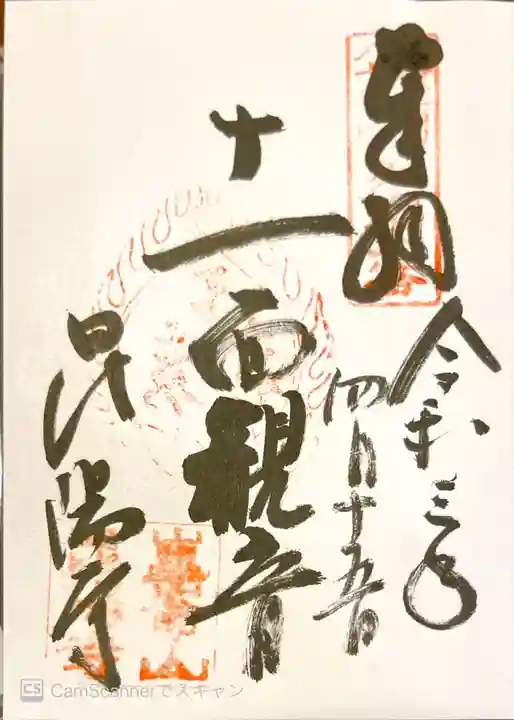 奉拝
令和三年
四月十五日
十一面観音
昆陽寺
CS CamScannerでスキャン